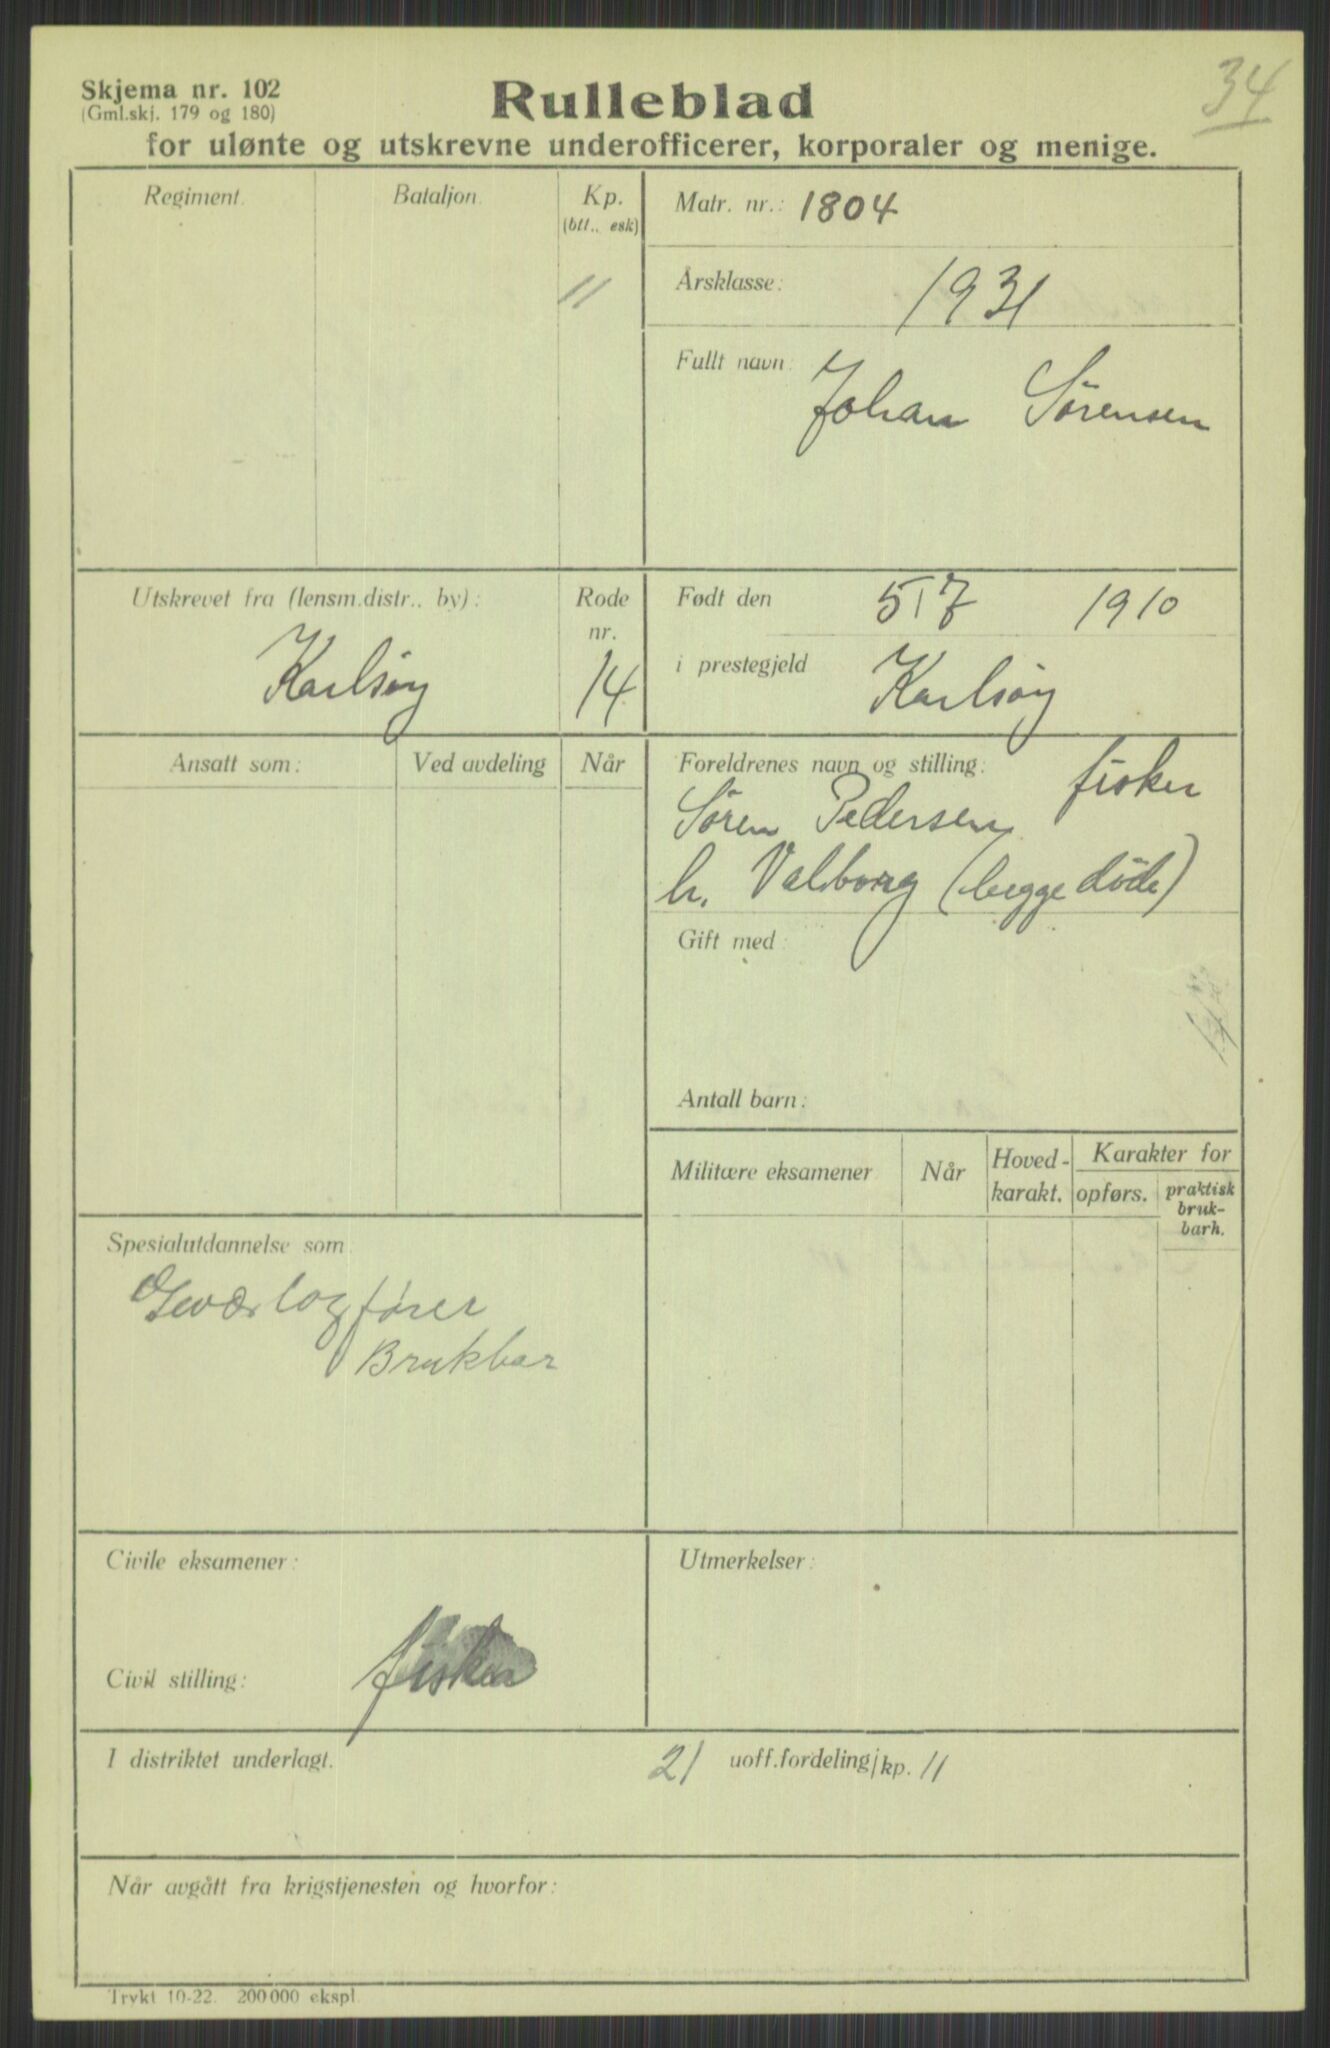 34
Skjema nr. 102
(Gml.skj. 179 og 180)
Rulleblad
for ulønte og utskrevne underofficerer, korporaler og menige.
Regiment.
Bataljon.
Kp.
(btt., esk)
11
Matr. nr.: 1804
Årsklasse: 1931
Fullt navn: Johan Sørensen
Utskrevet fra (lensm.distr., by):
Karlsøy
Rode
nr.
14
Født den 5/7 1910
i prestegjeld Karlsøy
Ansatt som:
Ved avdeling
Når
Foreldrenes navn og stilling: fisker
Sören Pedersen
h. Valborg (begge döde)
Gift med:
Antall barn:
Militære eksamener
Når
Hoved-
karakt.
Karakter for
opførs.
praktisk
bruk-
barh.
Spesialutdannelse som
Geværlagfører
Brukbar
Civile eksamener:
Civil stilling: fisker
Utmerkelser:
I distriktet underlagt. 21 uoff.fordeling/kp. 11
Når avgått fra krigstjenesten og hvorfor:
Trykt 10-22. 200 000 ekspl.